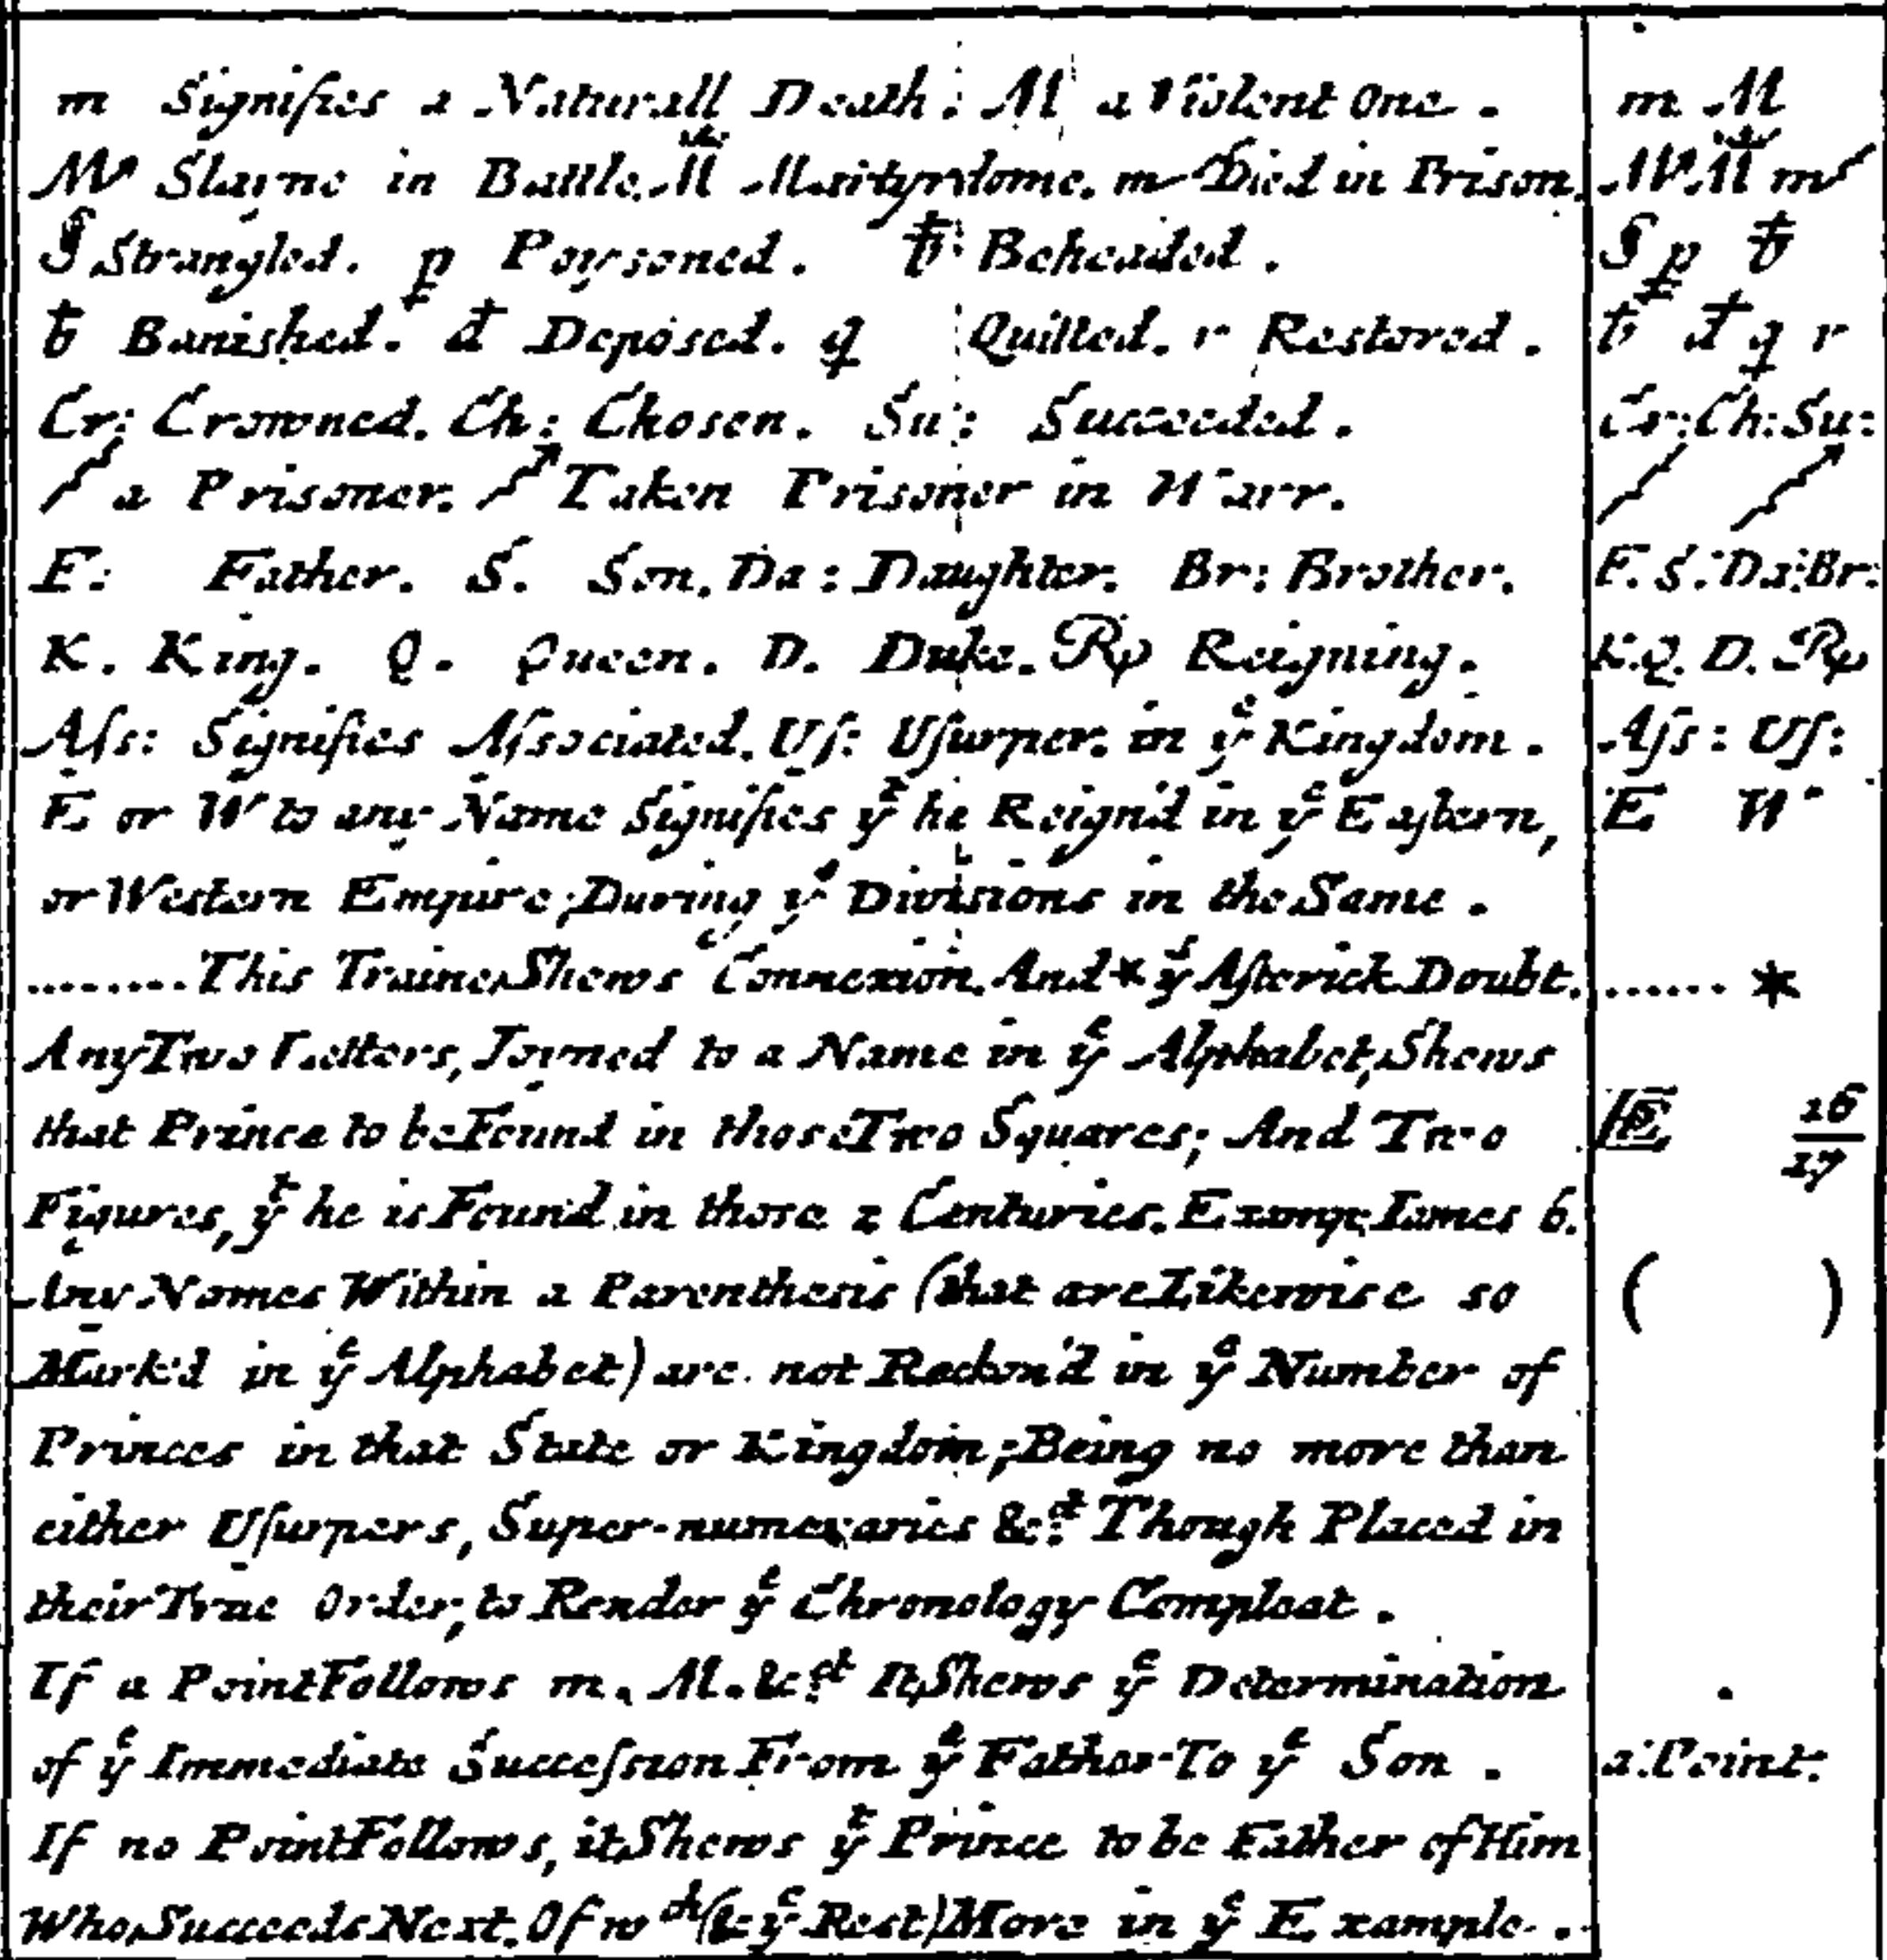 m Signifies a Naturall Death: M a Violent One. m M
Slayne in Battle. M Martyrdome. m Died in Prison.
Strangled. p Poysoned. Beheaded. p
Banished. Deposed. q Quitted. r Restored. q r
Cr: Crowned. Ch: Chosen. Su: Succeeded. Cr: Ch: Su:
a Prisoner. Taken Prisoner in Warr.
F: Father. S. Son. Da: Daughter. Br: Brother. F. S: Da: Br:
K. King. Q. Queen. D. Duke. Reigning. K. Q. D.
Aſs: Signifies Aſsociated. Uſ: Uſurper. in yᵉ Kingdom. Aſs: Uſ:
E. or W to any Name Signifies yᵗ he Reign'd in yᵉ Eaſtern, E W
or Western Empire; During yᵉ Divisions in the Same.
........ This Traine, Shews Connexion. And * yᵉ Aſterick Doubt. ...... *
Any Two Letters, Joyned to a Name in yᵉ Alphabet, Shews
that Prince to be Found in those Two Squares; And Two 16/17
Figures, yᵗ he is Found in those 2 Centuries. Examp: Iames 6.
Any Names Within a Parenthesis (that are Likewise so ( )
Mark'd in yᵉ Alphabet) are not Reckon'd in yᵉ Number of
Princes in that State or Kingdom; Being no more than
either Uſurpers, Super-numeraries &cᵗ Though Placed in
their True Order, to Render yᵉ Chronology Compleat.
If a Point Follows m. M. &cᵗ It Shews yᵉ Determination .
of yᵉ Immediate Succeſsion From yᵉ Father To yᵉ Son. a: Point:
If no Point Follows, it Shews yᵗ Prince to be Father of Him
Who Succeeds Next. Of wᶜʰ (& yᵉ Rest) More in yᵉ Example.